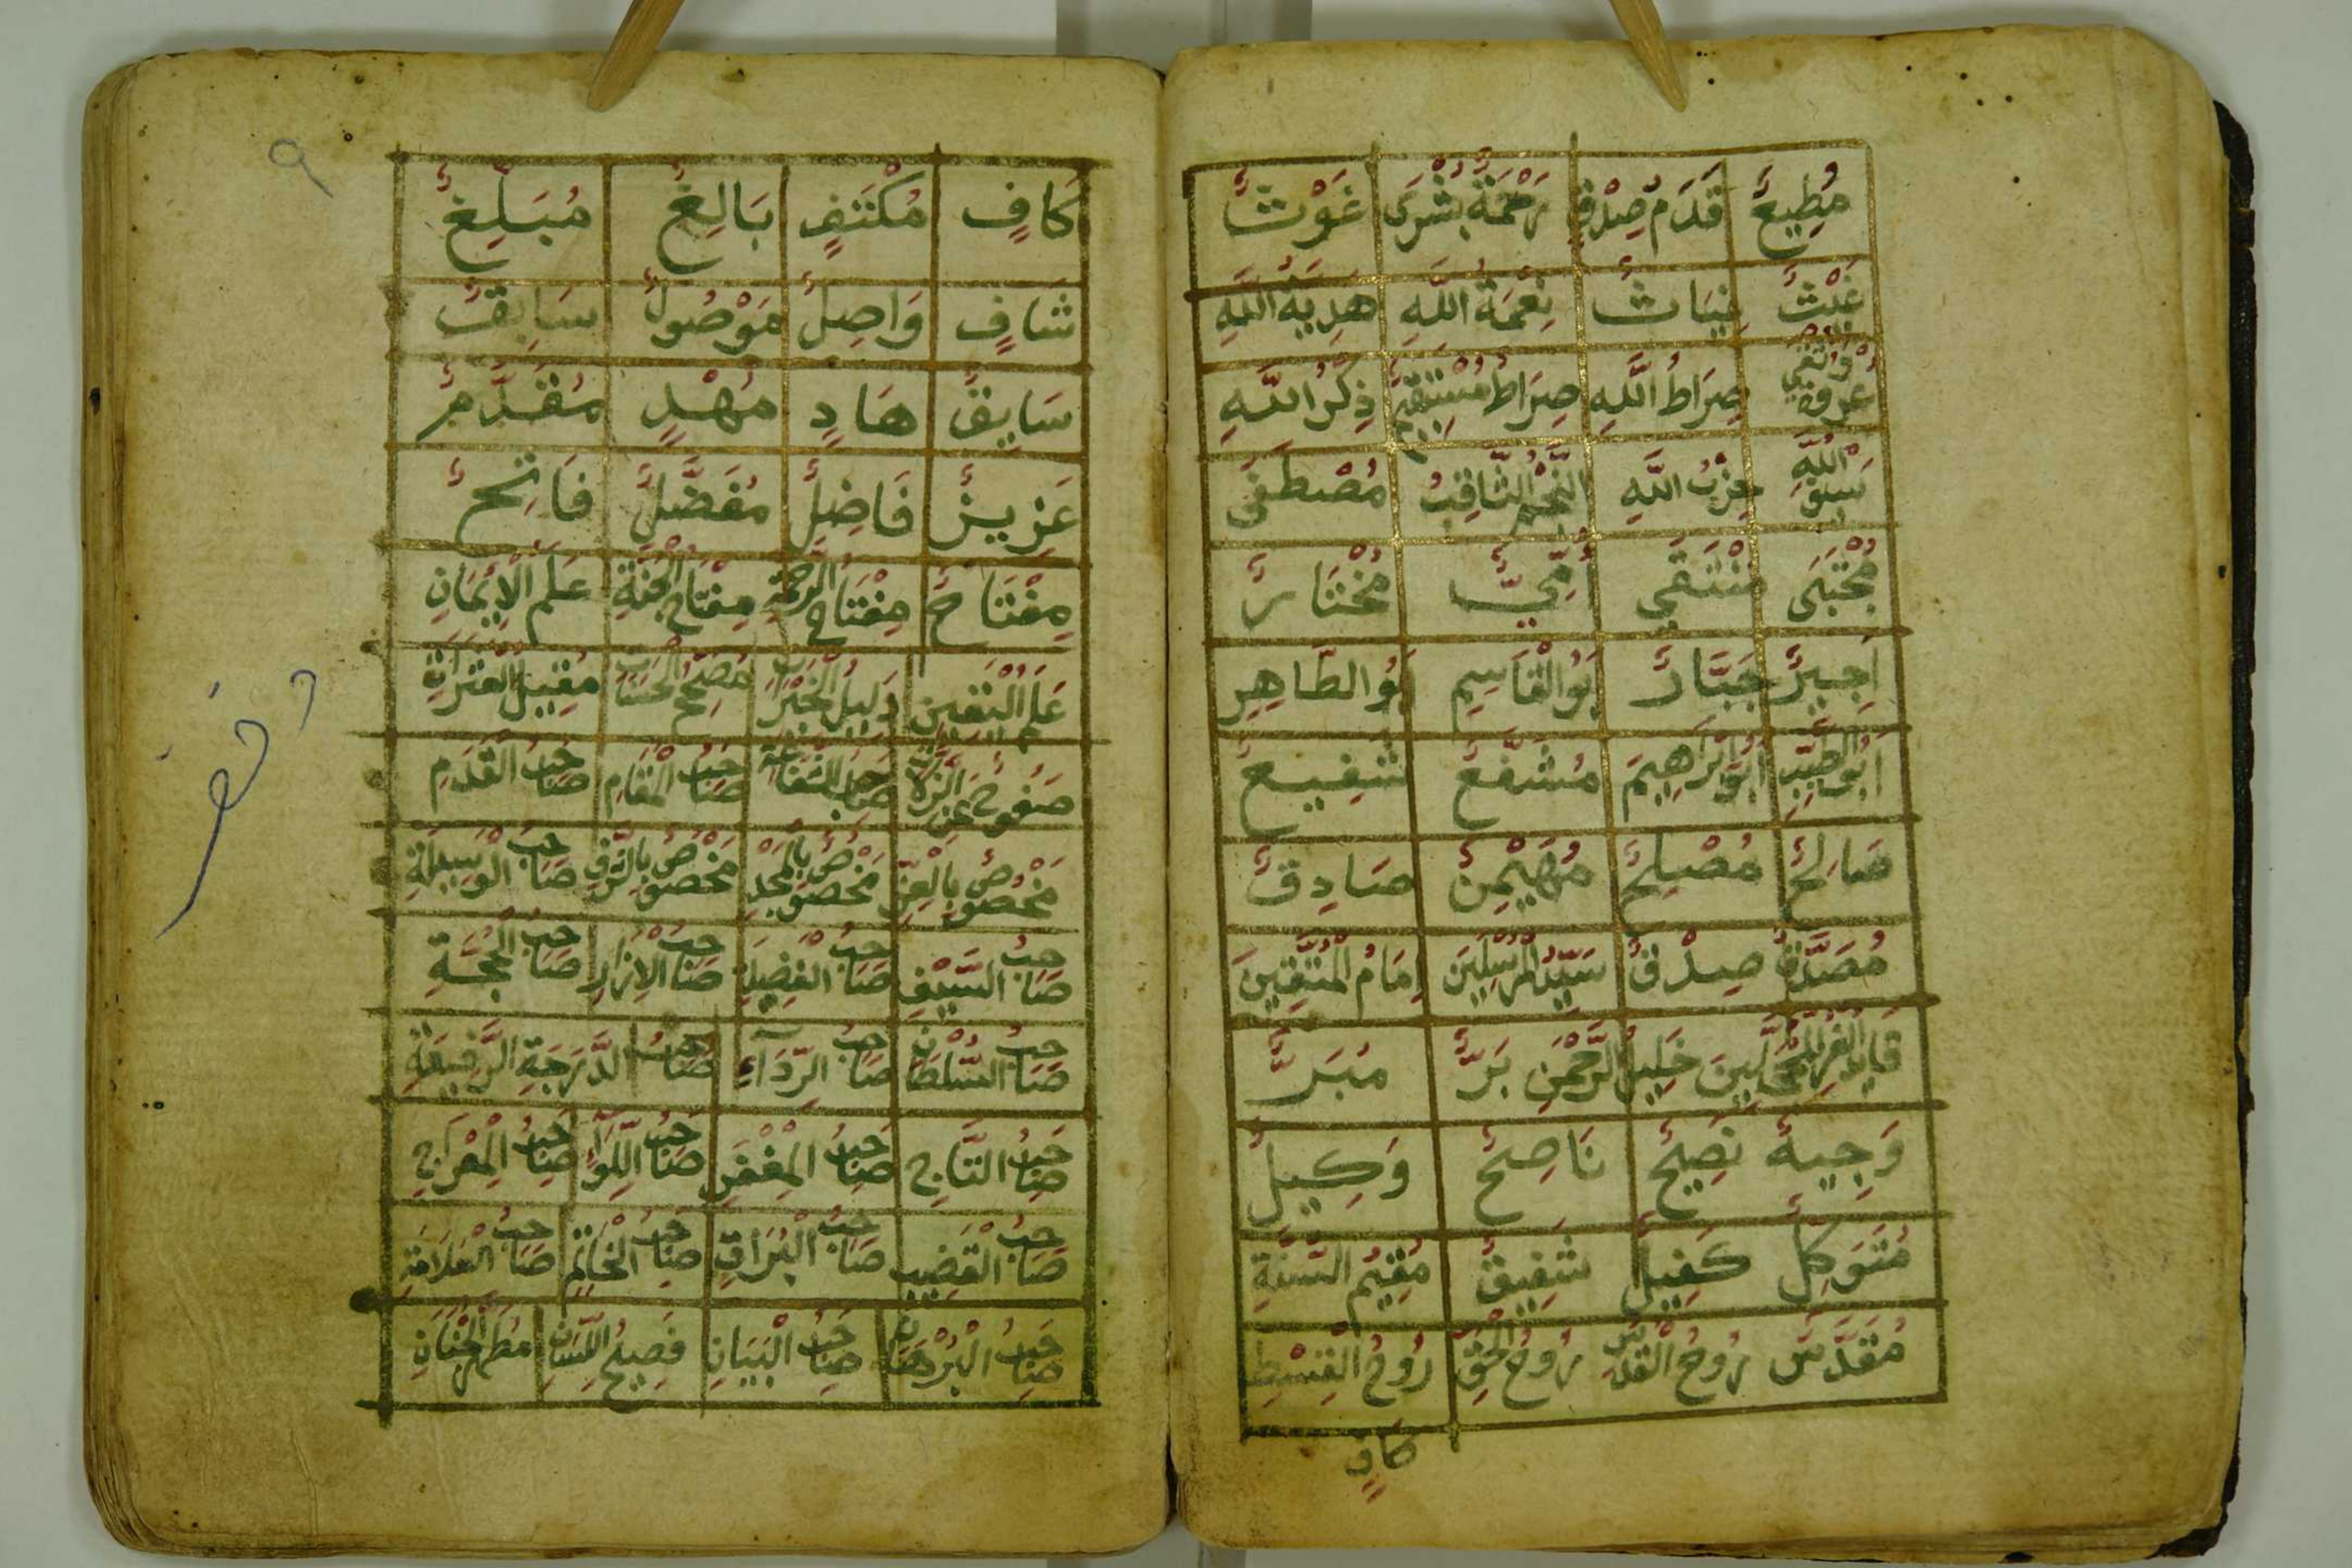 مُطِيعٌ قَدَمُ صِدْقٍ رَحْمَةٌ بُشْرَى غَوْثٌ
غَيْثٌ غِيَاثٌ نِعْمَةُ اللَّهِ هَدِيَّةُ اللَّهِ
عُرْوَةٌ وُثْقَى صِرَاطُ اللَّهِ صِرَاطٌ مُسْتَقِيمٌ ذِكْرُ اللَّهِ
سَيْفُ اللَّهِ حِزْبُ اللَّهِ النَّجْمُ الثَّاقِبُ مُصْطَفَى
مُجْتَبَى مُنْتَقَى أُمِّيٌّ مُخْتَارٌ
أَجِيرٌ جَبَّارٌ أَبُو الْقَاسِمِ أَبُو الطَّاهِرِ
أَبُو الطَّيِّبِ أَبُو إِبْرَاهِيمَ مُشَفَّعٌ شَفِيعٌ
صَالِحٌ مُصْلِحٌ مُهَيْمِنٌ صَادِقٌ
مُصَدَّقٌ صِدْقٌ سَيِّدُ الْمُرْسَلِينَ إِمَامُ الْمُتَّقِينَ
قَايِدُ الْغُرِّ الْمُحَجَّلِينَ خَلِيلُ الرَّحْمٰنِ بَرٌّ مُبَرٌّ
وَجِيهٌ نَصِيحٌ نَاصِحٌ وَكِيلٌ
مُتَوَكِّلٌ كَفِيلٌ شَفِيقٌ مُقِيمُ السُّنَّةِ
مُقَدَّسٌ رُوحُ الْقُدُسِ رُوحُ الْحَقِّ رُوحُ الْقِسْطِ
كَافٍ
٩
كَافٍ مُكْتَفٍ بَالِغٌ مُبَلِّغٌ
شَافٍ وَاصِلٌ مَوْصُولٌ سَابِقٌ
سَايِقٌ هَادٍ مُهْدٍ مُقَدَّمٌ
عَزِيزٌ فَاضِلٌ مُفَضَّلٌ فَاتِحٌ
مِفْتَاحٌ مِفْتَاحُ الرَّحْمَةِ مِفْتَاحُ الْجَنَّةِ عَلَمُ الْإِيمَانِ
عَلَمُ الْيَقِينِ دَلِيلُ الْخَيْرَاتِ مُصَحِّحُ الْحَسَنَاتِ مُقِيلُ الْعَثَرَاتِ
صَفُوحٌ عَنِ الزَّلَّاتِ صَاحِبُ الشَّفَاعَةِ صَاحِبُ الْمَقَامِ صَاحِبُ الْقَدَمِ
مَخْصُوصٌ بِالْعِزِّ مَخْصُوصٌ بِالْمَجْدِ مَخْصُوصٌ بِالشَّرَفِ صَاحِبُ الْوَسِيلَةِ
صَاحِبُ السَّيْفِ صَاحِبُ الْفَضِيلَةِ صَاحِبُ الْإِزَارِ صَاحِبُ الْحُجَّةِ
صَاحِبُ السُّلْطَانِ صَاحِبُ الرِّدَآءِ صَاحِبُ الدَّرَجَةِ الرَّفِيعَةِ
صَاحِبُ التَّاجِ صَاحِبُ الْمِغْفَرِ صَاحِبُ اللِّوَآءِ صَاحِبُ الْمِعْرَاجِ
صَاحِبُ الْقَضِيبِ صَاحِبُ الْبُرَاقِ صَاحِبُ الْخَاتَمِ صَاحِبُ الْعَلَامَةِ
صَاحِبُ الْبُرْهَانِ صَاحِبُ الْبَيَانِ فَصِيحُ اللِّسَانِ مُطَهَّرُ الْجَنَانِ